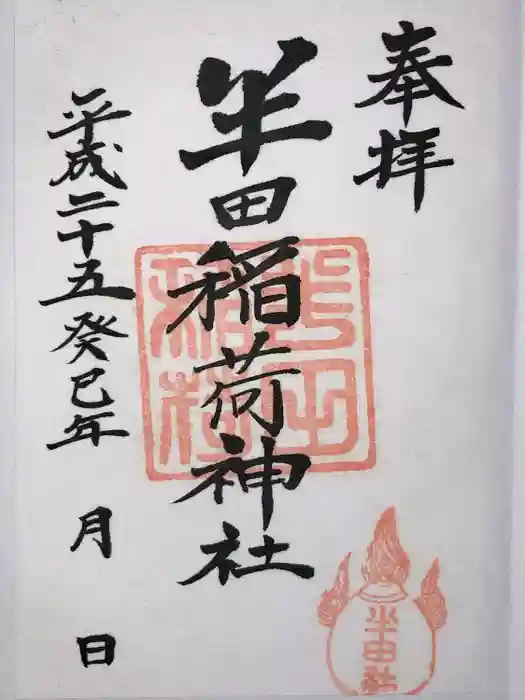 奉拝
半田稲荷神社
平成二十五癸巳年 月 日
半田社